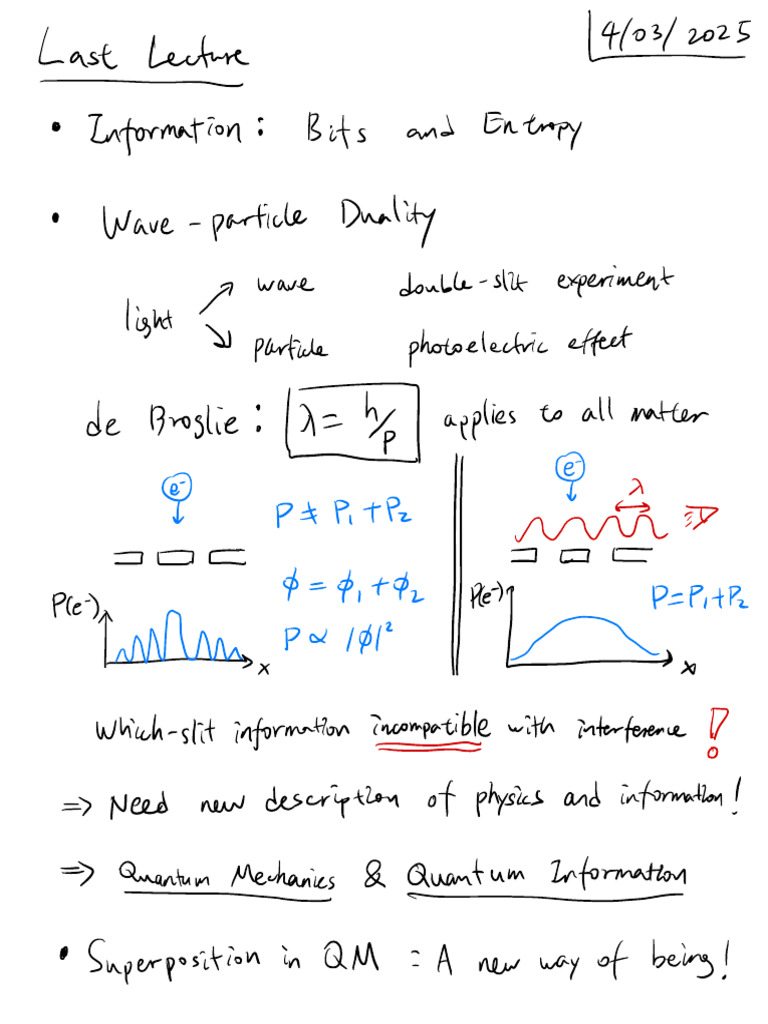 Last Lecture
4/03/2025
• Information: Bits and Entropy
• Wave-particle Duality
light
wave double-slit experiment
particle photoelectric effect
de Broglie: λ = h/p applies to all matter
e⁻
P ≠ P₁ + P₂
ϕ = ϕ₁ + ϕ₂
P ∝ |ϕ|²
P(e⁻)
x
e⁻
λ
P(e⁻)
P = P₁ + P₂
x
Which-slit information incompatible with interference !
⇒ Need new description of physics and information!
⇒ Quantum Mechanics & Quantum Information
• Superposition in QM : A new way of being!